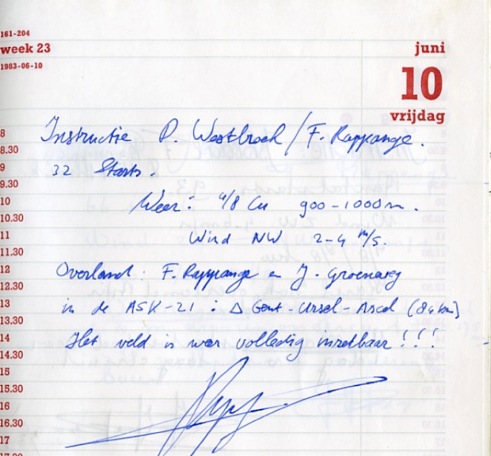 161-204
week 23
1983-06-10
juni
10
vrijdag
8
8.30
9
9.30
10
10.30
11
11.30
12
12.30
13
13.30
14
14.30
15
15.30
16
16.30
17
Instructie P. Westbroek / F. Rappange.
32 Starts.
Weer: 4/8 Cu 900-1000 m.
Wind NW 2-4 m/s.
Overland: F. Rappange en J.
in de ASK-21: Δ Gent-Ursel-Assel (84 km)
Het veld is weer volledig inzetbaar!!!